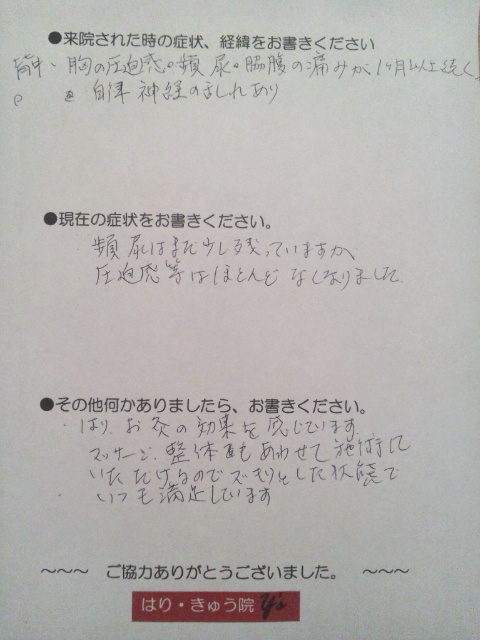 ●来院された時の症状、経緯をお書きください
背中、胸の圧迫感。頻尿。脇腹の痛みが、1ヶ月以上続く
自律神経のみだれあり
●現在の症状をお書きください。
・頻尿はまだ少し残っていますが
圧迫感等はほとんどなくなりました。
●その他何かありましたら、お書きください。
・はり、お灸の効果を感じています
マッサージ、整体もあわせて施術して
いただけるのでスッキリとした状態で
いつも満足しています
~~~ ご協力ありがとうございました。 ~~~
はり・きゅう院 Y's